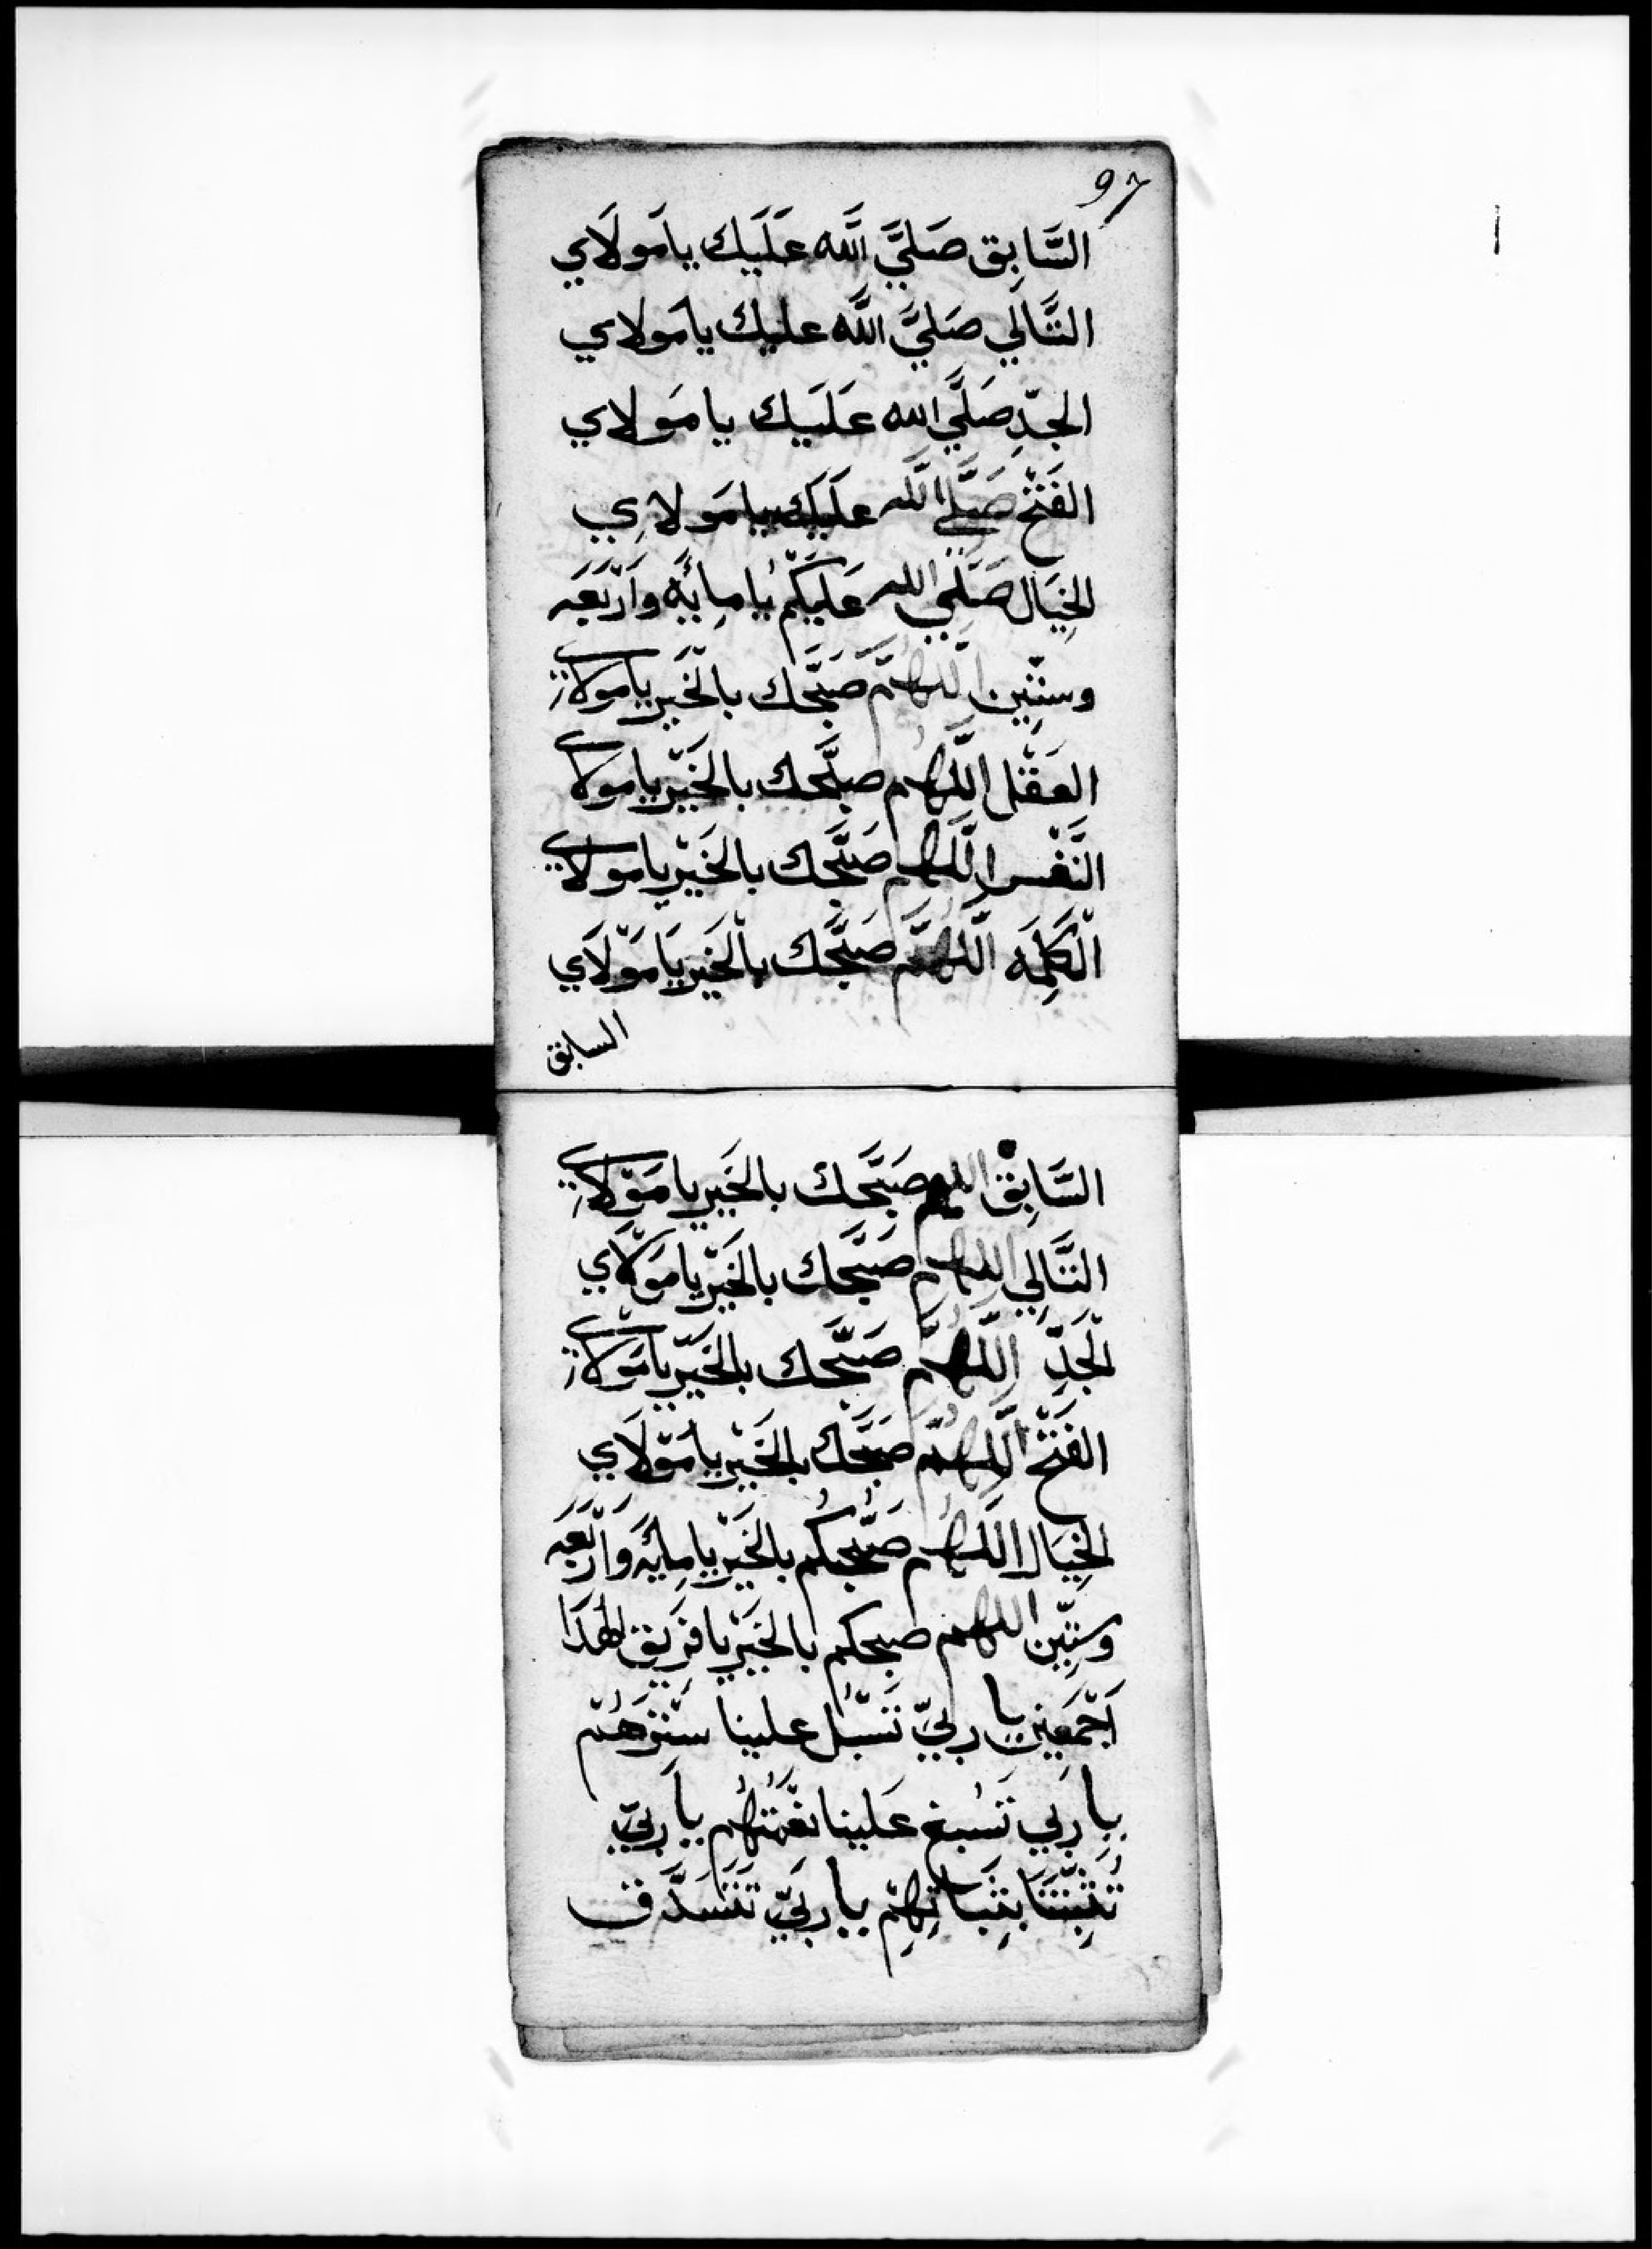 97
السَّابِق صَلَيَّ اللَّه عَلَيَك يا مَولَاي
التَّالِي صَلَيَّ اللَّه عليك يا مَولاي
الجدِّ صَلَّي الله عَلَيَك يا مَولاي
الفَتْح صَلَّي اللَّه عَلَيَك يا مَولاِي
الخِيَال صَلَّي الله عَلَيَكُم يا مِايَه وَارْبَعَه
وستِّين اللَّهُمَّ صَبَّحَك بالخَير يا مَولاي
العَقْل اللَّهُم صبَّحك بالخَيْر يا مَولاي
النَّفْس اللَّهُم صَبَّحَك بالخَيْر يا مَولاي
الْكَلِمَه اللَّهُمَّ صَبَّحَك بالْخَير يَا مَوْلَاي
السابق
السَّابِقْ اللهم صَبَّحَك بالخَير يا مَوْلاَي
التَّالِي اللهم صَبَّحَك بالخَيْر يا مَوْلَاي
الْجَدِّ اللَّهُمَّ صَبَّحَك بالخَيْر يا مَوْلاي
الفَتْح اللَّهُمَّ صَبَّحَك بالخَيْر يا مَوْلَاي
الخِيَال اللَّهُم صَبَّحكُم بالخَيْر يا مِايَه وَارْبَعَه
وستِّين اللهم صبحكم بالخَيْر يا فَرِيق الهُدَا
اَجْمَعِين يا ربيّ تَسْبُل علينا سَتْرَهُم
يا رَبي تَسْبغ عَلينا نعْمَتْهُم يا رَبيّ
تُثَبِّتْنَا بِثَبَاتِهِمْ يا ربَيّ تَتَسَدَّق